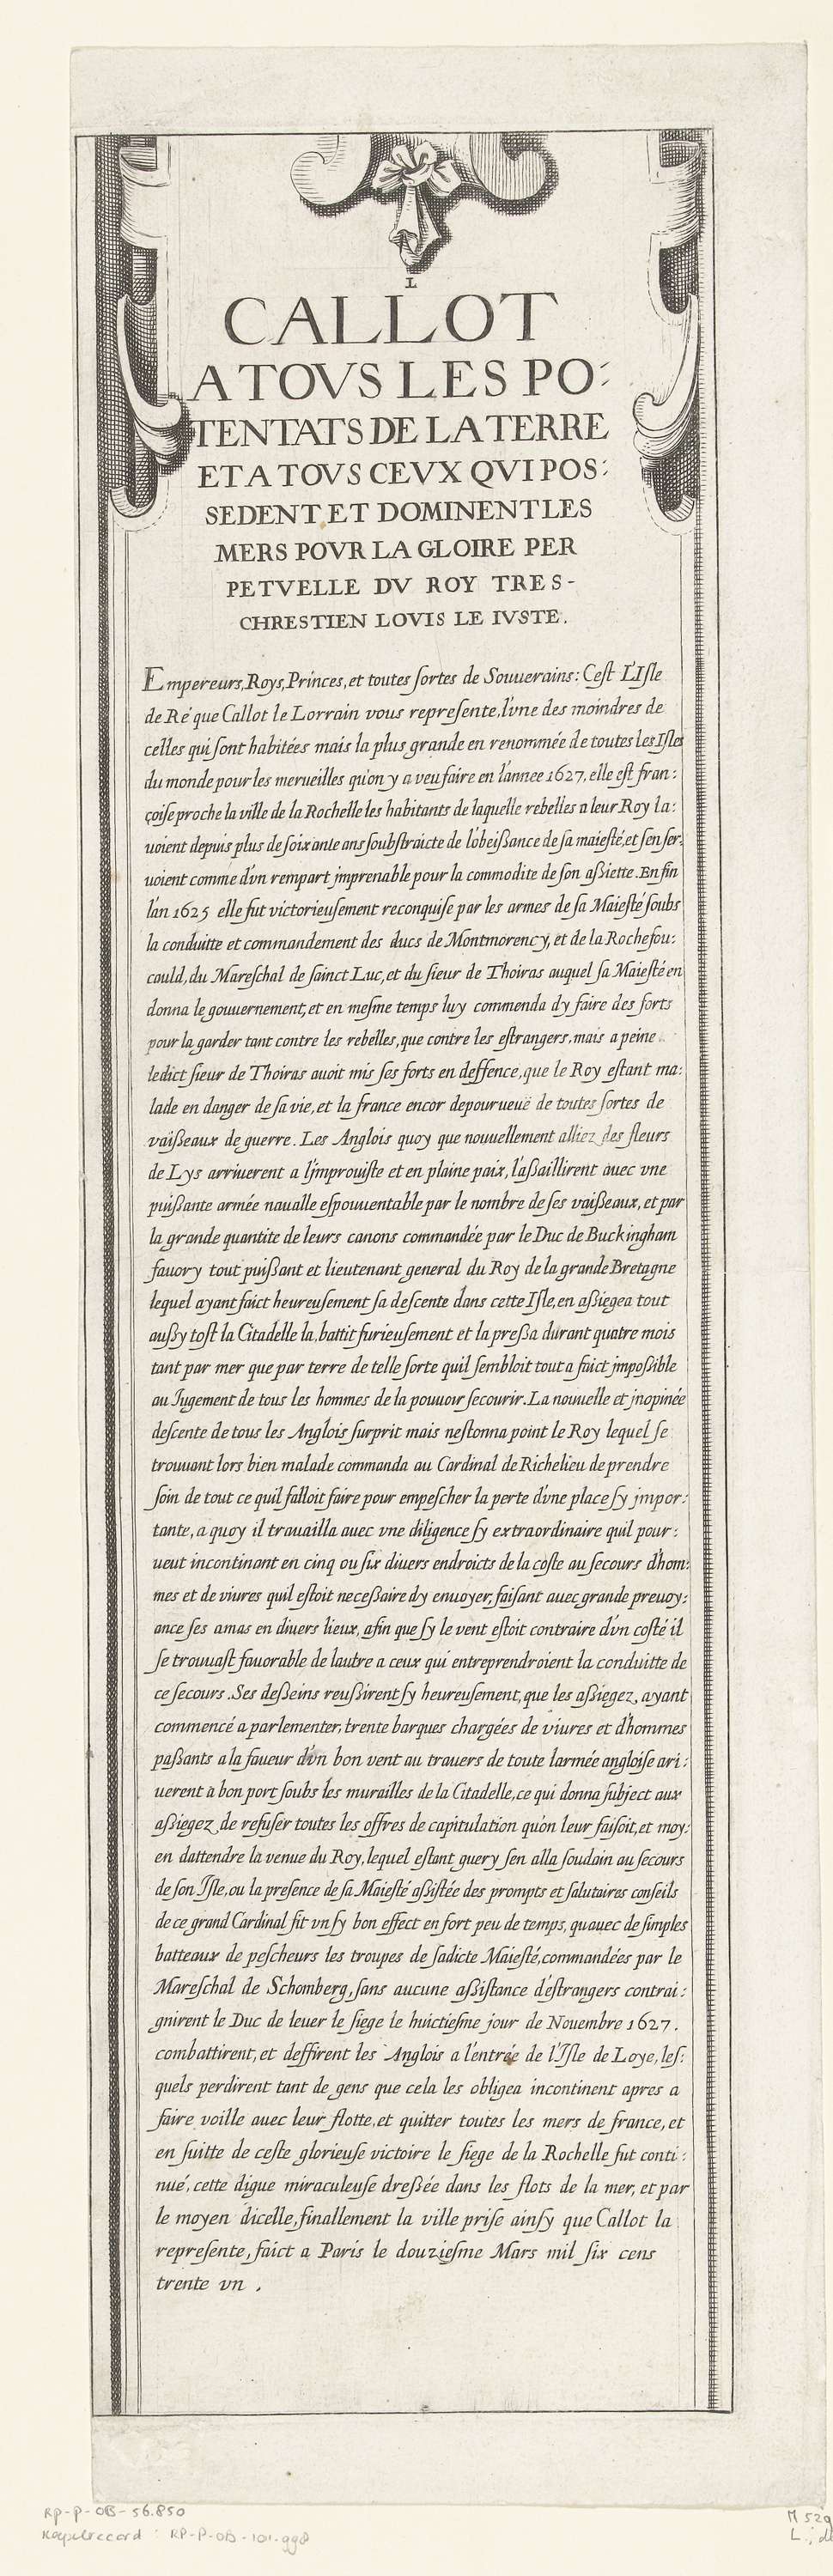 L
CALLOT
A TOVS LES PO:
TENTATS DE LA TERRE
ET A TOVS CEVX QVI POS:
SEDENT ET DOMINENT LES
MERS POVR LA GLOIRE PER
PETVELLE DV ROY TRES-
CHRESTIEN LOVIS LE IVSTE.
Empereurs, Roys, Princes, et toutes ſortes de Souuerains: Ceſt L'Iſle
de Ré que Callot le Lorrain vous repreſente, l'vne des moindres de
celles qui ſont habitées mais la plus grande en renommée de toutes les Iſles
du monde pour les merueilles qu'on y a veu faire en l'annee 1627, elle eſt fran:
çoiſe proche la ville de la Rochelle les habitants de laquelle rebelles a leur Roy la:
uoient depuis plus de ſoixante ans ſoubſtraicte de l'obeißance de ſa maieſté, et ſen ſer:
uoient comme d'vn rempart jmprenable pour la commodite de ſon aßiette. Enfin
l'an 1625 elle fut victorieuſement reconquiſe par les armes de ſa Maieſté ſoubs
la conduitte et commandement des ducs de Montmorency, et de la Rochefou:
cauld, du Mareſchal de ſainct Luc, et du ſieur de Thoiras auquel ſa Maieſté en
donna le gouuernement, et en meſme temps luy commenda d'y faire des forts
pour la garder tant contre les rebelles, que contre les eſtrangers, mais a peine
ledict ſieur de Thoiras auoit mis ſes forts en deffence, que le Roy eſtant ma:
lade en danger de ſa vie, et la france encor depourueuë de toutes ſortes de
vaißeaux de guerre. Les Anglois quoy que nouuellement alliez des fleurs
de Lys arriuerent a l'jmprouiſte et en plaine paix, l'aßaillirent auec vne
puißante armée naualle eſpouuentable par le nombre de ſes vaißeaux, et par
la grande quantite de leurs canons commandée par le Duc de Buckingham
fauory tout puißant et lieutenant general du Roy de la grande Bretagne
lequel ayant faict heureuſement ſa deſcente dans cette Iſle, en aßiegea tout
außy toſt la Citadelle la, battit furieuſement et la preßa durant quatre mois
tant par mer que par terre de telle ſorte quil ſembloit tout a faict jmpoßible
au Jugement de tous les hommes de la pouuoir ſecourir. La nouuelle et jnopinée
deſcente de tous les Anglois ſurprit mais neſtonna point le Roy lequel ſe
trouuant lors bien malade commanda au Cardinal de Richelieu de prendre
ſoin de tout ce quil falloit faire pour empeſcher la perte d'vne place ſy jmpor:
tante, a quoy il trauailla auec vne diligence ſy extraordinaire quil pour:
ueut incontinant en cinq ou ſix diuers endroicts de la coſte au ſecours d'hom:
mes et de viures quil eſtoit neceßaire d'y enuoyer, faiſant auec grande preuoy:
ance ſes amas en diuers lieux, afin que ſy le vent eſtoit contraire d'vn coſté il
ſe trouuaſt fauorable de lautre a ceux qui entreprendroient la conduitte de
ce ſecours. Ses deßeins reußirent ſy heureuſement, que les aßiegez, ayant
commencé a parlementer, trente barques chargées de viures et d'hommes
paßants a la faueur d'vn bon vent au trauers de toute larmée angloiſe ari:
uerent à bon port ſoubs les murailles de la Citadelle, ce qui donna ſubject aux
aßiegez de refuſer toutes les offres de capitulation qu'on leur faiſoit, et moy:
en dattendre la venue du Roy, lequel eſtant guery ſen alla ſoudain au ſecours
de ſon Iſle, ou la preſence de ſa Maieſté aßiſtée des prompts et ſalutaires conſeils
de ce grand Cardinal fit vn ſy bon effect en fort peu de temps, quauec de ſimples
batteaux de peſcheurs les troupes de ſadicte Maieſté, commandées par le
Mareſchal de Schomberg, ſans aucune aßiſtance d'eſtrangers contrai:
gnirent le Duc de leuer le ſiege le huictieſme jour de Nouembre 1627.
combattirent, et deffirent les Anglois a l'entrée de l'Iſle de Loye, leſ:
quels perdirent tant de gens que cela les obligea incontinent apres a
faire voille auec leur flotte, et quitter toutes les mers de france, et
en ſuitte de ceſte glorieuſe victoire le ſiege de la Rochelle fut conti:
nué, cette digue miraculeuſe dreßée dans les flots de la mer, et par
le moyen dicelle, finallement la ville priſe ainſy que Callot la
repreſente, faict a Paris le douzieſme Mars mil ſix cens
trente vn.
RP-P-OB-56.850
Koepelrecord: RP-P-OB-101.998
M 529
L.;